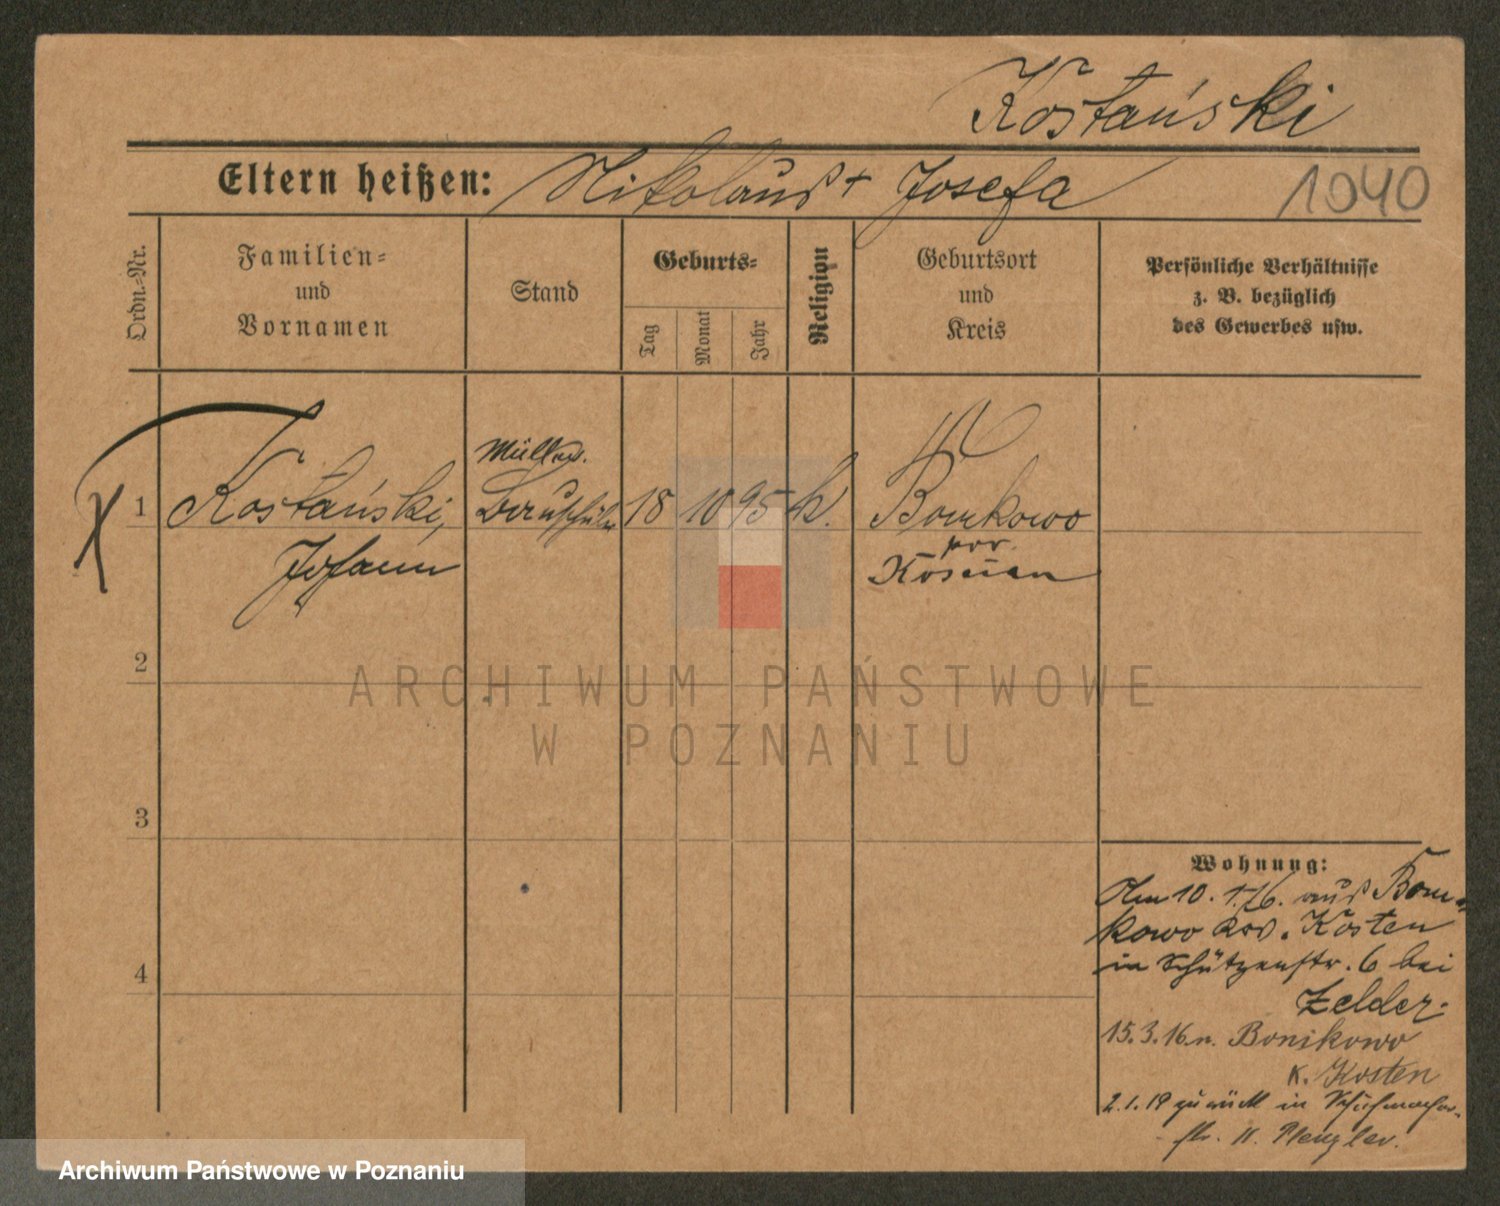 Kostański
Eltern heißen: Nikolaus + Josefa
1040
Ordn.-Nr.
Familien-
und
Vornamen
Stand
Geburts-
Tag
Monat
Jahr
Religion
Geburtsort
und
Kreis
Persönliche Verhältnisse
z. B. bezüglich
des Gewerbes usw.
Müller
1 Kostański, 18 10 95 k.
Johann
pow.
Kościan
2
ARCHIWUM PAŃSTWOWE
W POZNANIU
3
4
Wohnung:
Am 10. 1. 16. aus
kowo Krs. Kosten
in Schützenstr. 6 bei
Zelder.
15.3.16. n. Bonikowo
K. Kosten
2.1.19 zurück in Schuhmacher-
str. 11.
Archiwum Państwowe w Poznaniu